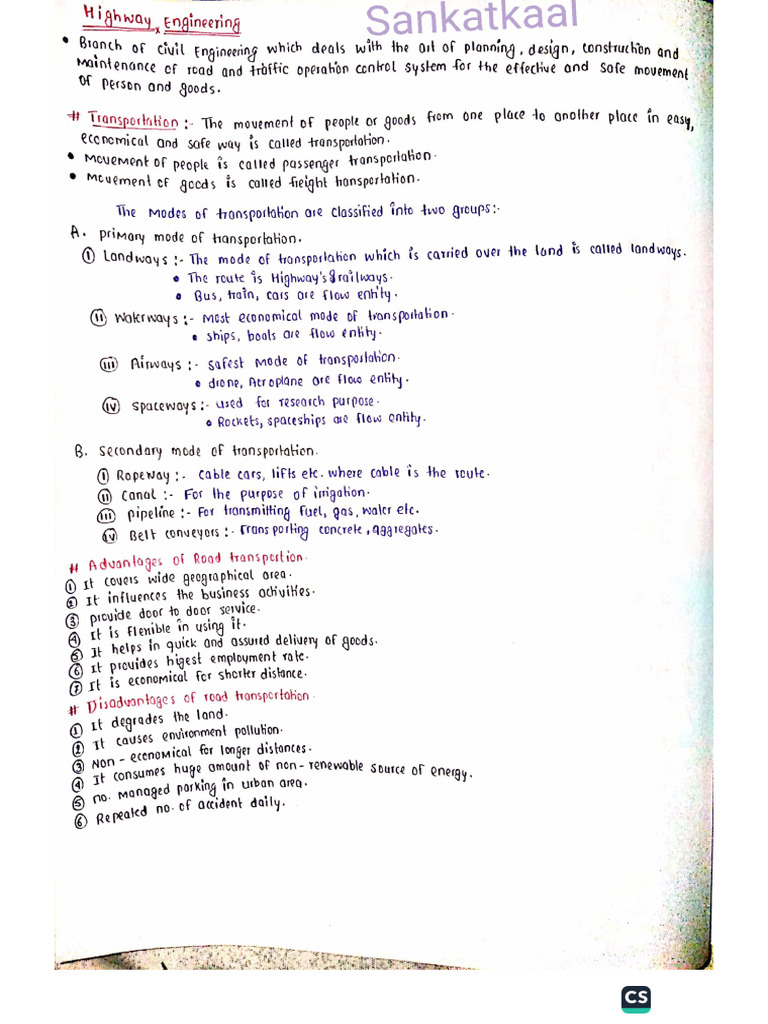 Sankatkaal
Highway Engineering
• Branch of civil Engineering which deals with the art of planning, design, construction and
maintenance of road and traffic operation control system for the effective and safe movement
of person and goods.
# Transportation :- The movement of people or goods from one place to another place in easy,
economical and safe way is called transportation.
• Movement of people is called passenger transportation.
• Movement of goods is called freight transportation.
The modes of transportation are classified into two groups:-
A. primary mode of transportation.
(i) Landways :- The mode of transportation which is carried over the land is called landways.
• The route is Highway's & railways.
• Bus, train, cars are flow entity.
(ii) Waterways :- Most economical mode of transportation.
• ships, boats are flow entity.
(iii) Airways :- safest mode of transportation.
• drone, Aeroplane are flow entity.
(iv) spaceways :- used for research purpose.
• Rockets, spaceships are flow entity.
B. Secondary mode of transportation.
(i) Ropeway :- cable cars, lifts etc. where cable is the route.
(ii) canal :- For the purpose of irrigation.
(iii) pipeline :- For transmitting fuel, gas, water etc.
(iv) Belt conveyors :- Transporting concrete, aggregates.
# Advantages of Road transportion.
① It covers wide geographical area.
② It influences the business activities.
③ provide door to door service.
④ It is flexible in using it.
⑤ It helps in quick and assured delivery of goods.
⑥ It provides higest employment rate.
⑦ It is economical for shorter distance.
# Disadvantages of road transportation.
① It degrades the land.
② It causes environment pollution.
③ Non-economical for longer distances.
④ It consumes huge amount of non-renewable source of energy.
⑤ no. managed parking in urban area.
⑥ Repeated no. of accident daily.
CS